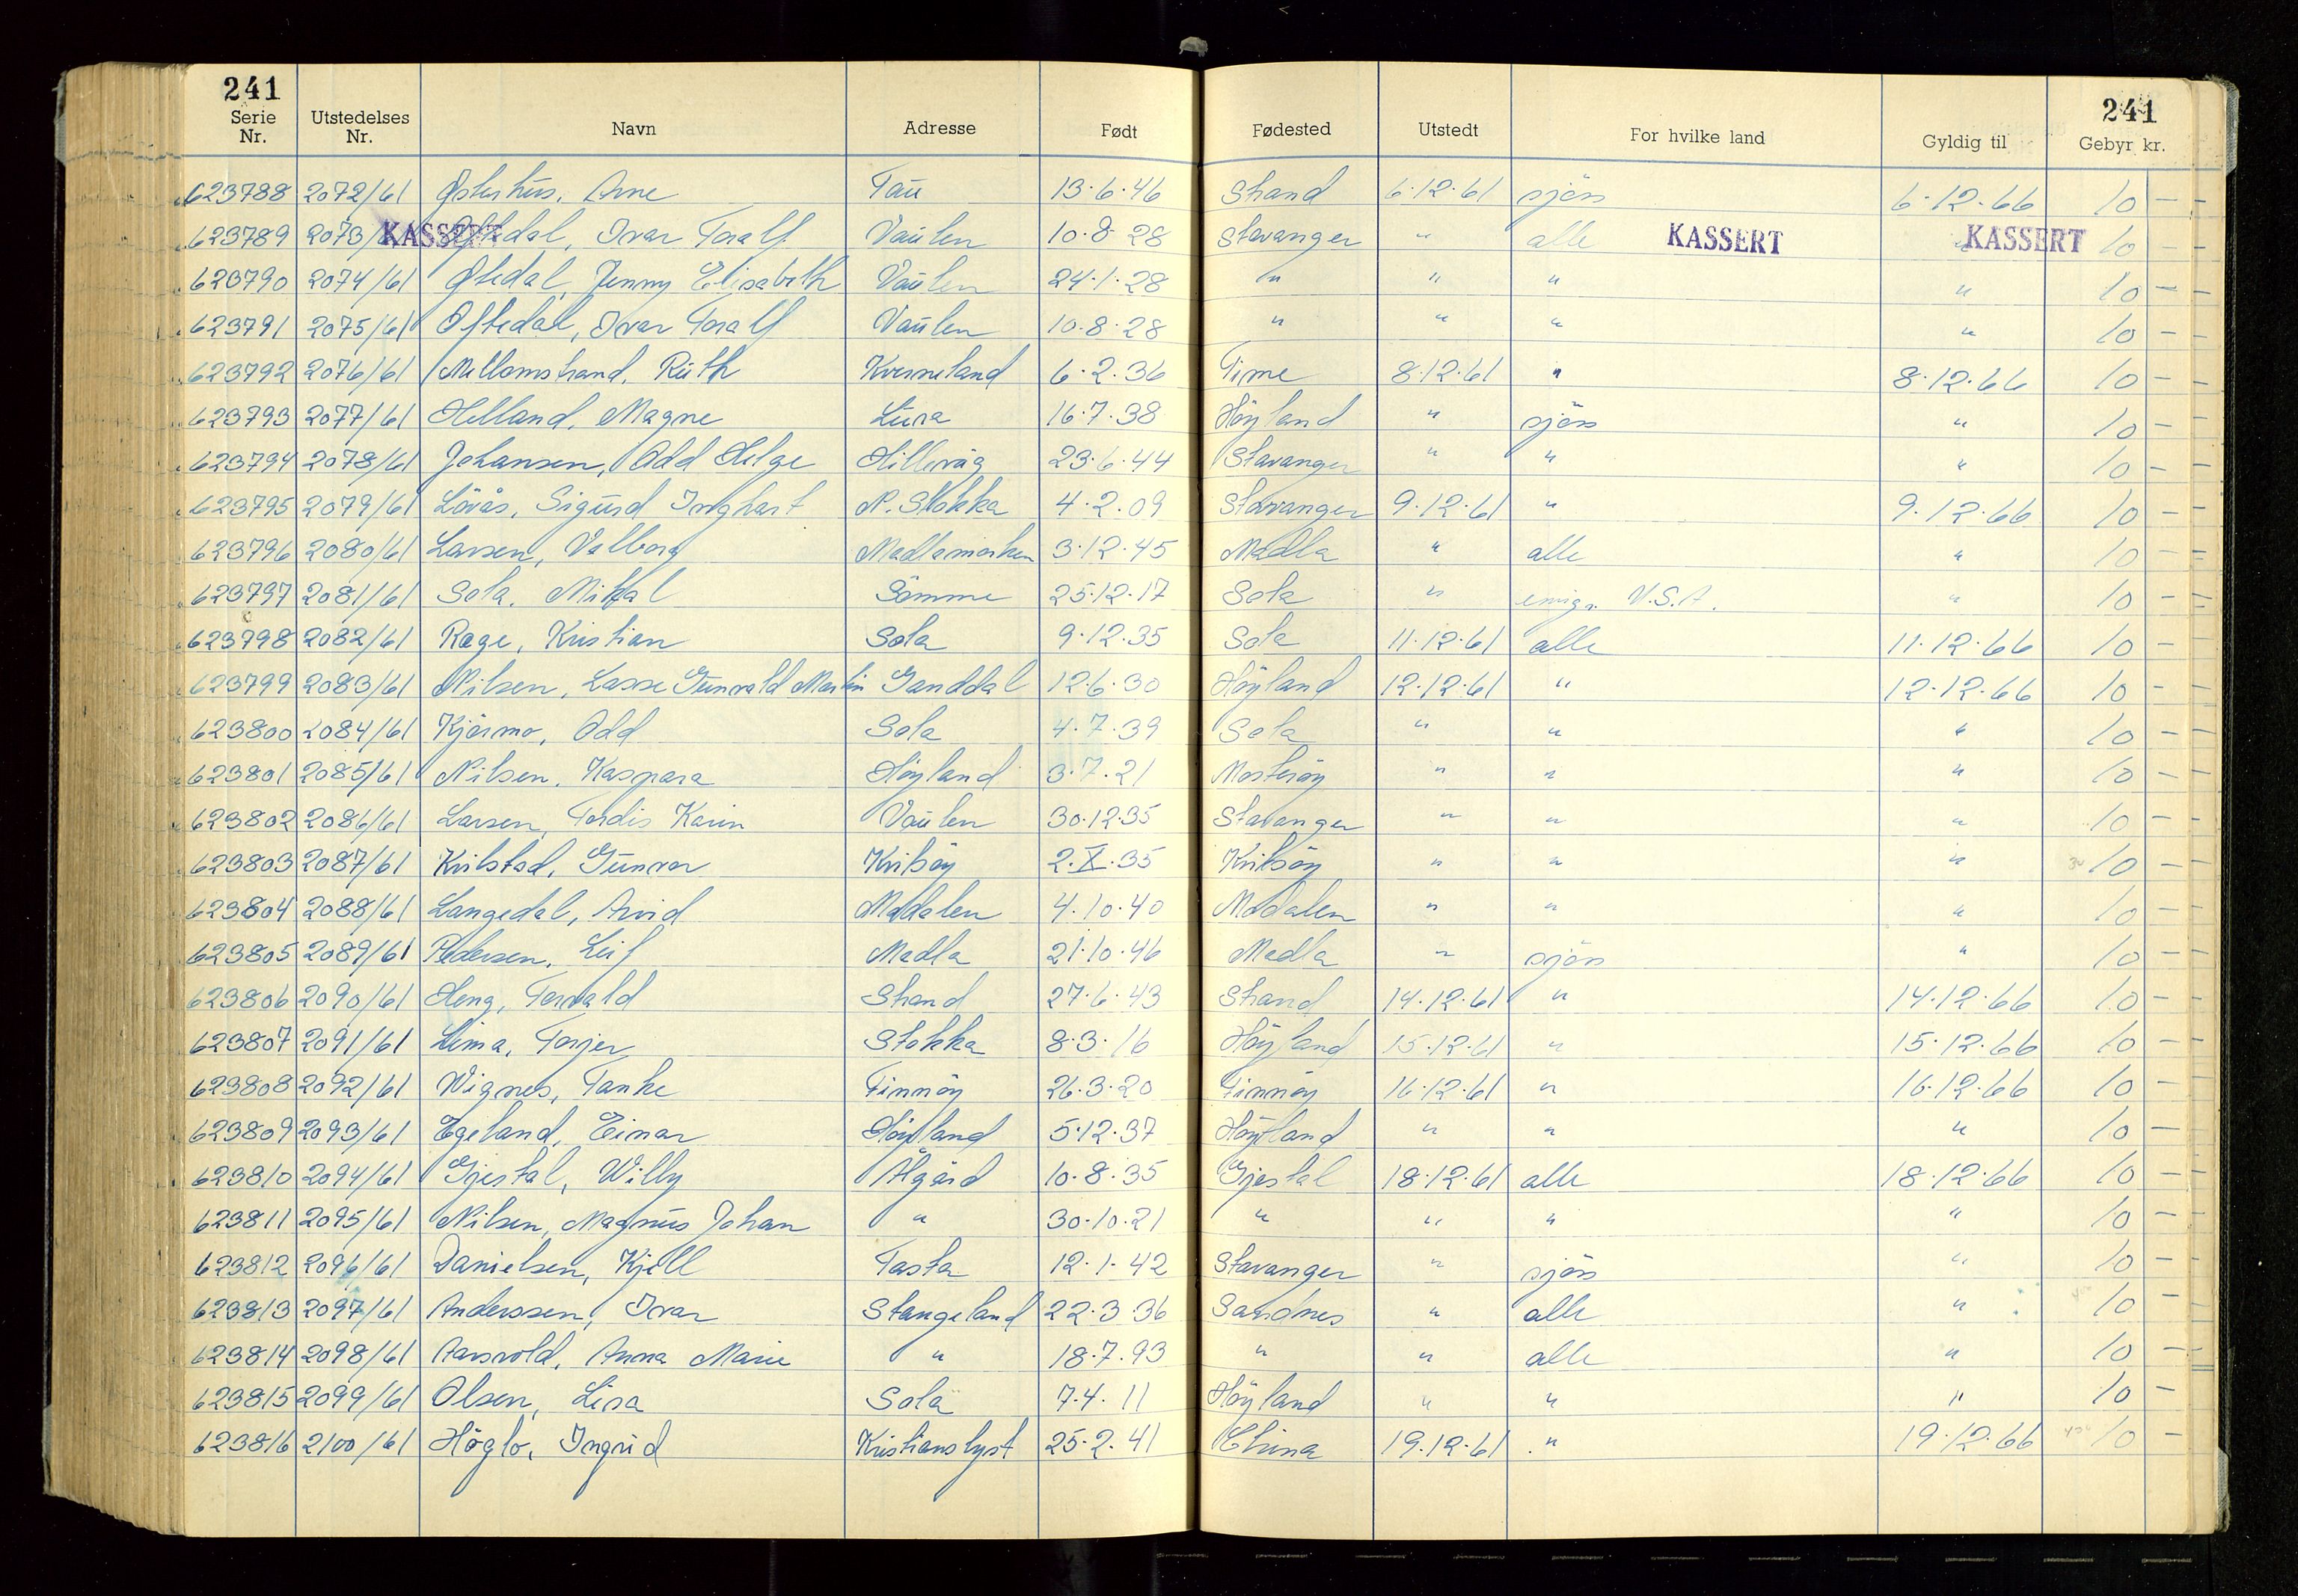 241 241
Serie Nr. Utstedelses Nr. Navn Adresse Født Fødested Utstedt For hvilke land Gyldig til Gebyr kr.
623788 2072/61 Østerhus, Arne Tau 13.6.46 Strand 6.12.61 sjøss 6.12.66 10 —
623789 2073/61 KASSERT Oftedal, Ivar Toralf Vaulen 10.8.28 Stavanger " alle KASSERT KASSERT 10 —
623790 2074/61 Oftedal, Jenny Elisabeth Vaulen 24.1.28 " " " " 10 —
623791 2075/61 Oftedal, Ivar Toralf Vaulen 10.8.28 " " " " 10 —
623792 2076/61 Mellomstrand, Ruth Kverneland 6.2.36 Time 8.12.61 " 8.12.66 10 —
623793 2077/61 Helland, Magne Lura 16.7.38 Höyland " sjöss " 10 —
623794 2078/61 Johansen, Odd Helge Hillevåg 23.6.44 Stavanger " " " 10 —
623795 2079/61 Lövås, Sigurd Inghart N. Stokka 4.2.09 Stavanger 9.12.61 " 9.12.66 10 —
623796 2080/61 Larsen, Valborg Madlamarken 3.12.45 Madla " alle " 10 —
623797 2081/61 Sola, Mikal Sömme 25.12.17 Sola " emigr. U.S.A. " 10 —
623798 2082/61 Rage, Kristian Sola 9.12.35 Sola 11.12.61 alle 11.12.66 10 —
623799 2083/61 Nilsen, Lasse Gunvald Martin Ganddal 12.6.30 Höyland 12.12.61 " 12.12.66 10 —
623800 2084/61 Kjörmo, Odd Sola 4.7.39 Sola " " " 10 —
623801 2085/61 Nilsen, Kaspara Höyland 3.7.21 Mosteröy " " " 10 —
623802 2086/61 Larsen, Tordis Karin Vaulen 30.12.35 Stavanger " " " 10 —
623803 2087/61 Kvilstad, Gunvor Kvitsöy 2.X.35 Kvitsöy " " " 10 —
623804 2088/61 Langedal, Arvid Modalen 4.10.40 Modalen " " " 10 —
623805 2089/61 Pedersen, Leif Madla 21.10.46 Madla " sjöss " 10 —
623806 2090/61 Heng, Torvald Strand 27.6.43 Strand 14.12.61 " 14.12.66 10 —
623807 2091/61 Lima, Torjer Stokka 8.3.16 Höyland 15.12.61 " 15.12.66 10 —
623808 2092/61 Wignes, Tanke Finnöy 26.3.20 Finnöy 16.12.61 " 16.12.66 10 —
623809 2093/61 Egeland, Einar Höyland 5.12.37 Höyland " " " 10 —
623810 2094/61 Gjestal, Willy Ålgård 10.8.35 Gjestal 18.12.61 alle 18.12.66 10 —
623811 2095/61 Nilsen, Magnus Johan " 30.10.21 " " " " 10 —
623812 2096/61 Danielsen, Kjell Tasta 12.1.42 Stavanger " sjöss " 10 —
623813 2097/61 Anderssen, Ivar Stangeland 22.3.36 Sandnes " alle " 10 —
623814 2098/61 Aarsvold, Anna Marie " 18.7.93 " " alle " 10 —
623815 2099/61 Olsen, Lisa Sola 7.4.11 Höyland " " " 10 —
623816 2100/61 Höglo, Ingrid Kristianslyst 25.2.41 China 19.12.61 " 19.12.66 10 —